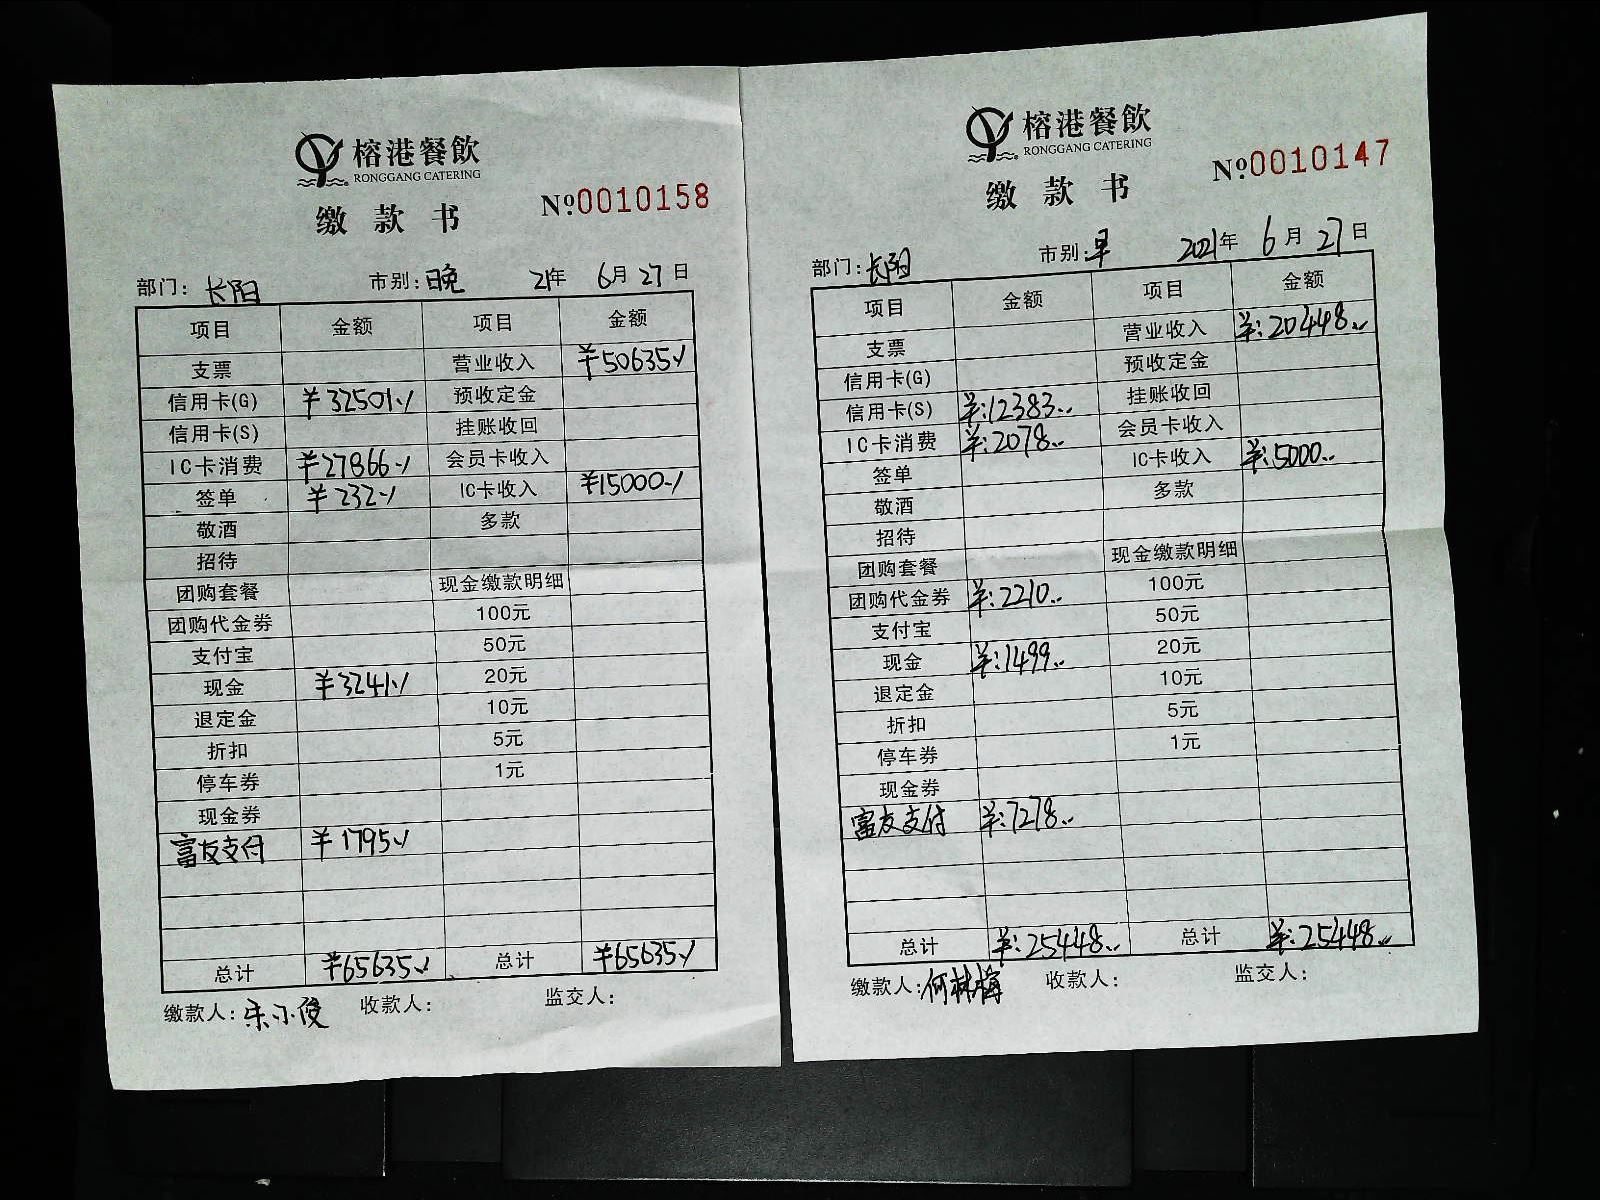 榕港餐飲
RONGGANG CATERING
缴款书
№0010158
部门: 长阳 市别: 晚 21年 6月 27日
项目 金额 项目 金额
支票 营业收入 ¥50635
信用卡(G) ¥32501 预收定金
信用卡(S) 挂账收回
IC卡消费 ¥27866 会员卡收入
签单 ¥232 IC卡收入 ¥15000
敬酒 多款
招待
团购套餐 现金缴款明细
团购代金券 100元
支付宝 50元
现金 ¥3241 20元
退定金 10元
折扣 5元
停车券 1元
现金券
富友支付 ¥1795
总计 ¥65635 总计 ¥65635
缴款人: 宋小俊 收款人: 监交人:
榕港餐飲
RONGGANG CATERING
缴款书
№0010147
部门: 长阳 市别: 早 2021年 6月 27日
项目 金额 项目 金额
支票 营业收入 ¥:20448
信用卡(G) 预收定金
信用卡(S) ¥:12383 挂账收回
IC卡消费 ¥:2078 会员卡收入
签单 IC卡收入 ¥:5000
敬酒 多款
招待
团购套餐 现金缴款明细
团购代金券 ¥:2210 100元
支付宝 50元
现金 ¥:1499 20元
退定金 10元
折扣 5元
停车券 1元
现金券
富友支付 ¥:7278
总计 ¥:25448 总计 ¥:25448
缴款人: 何林梅 收款人: 监交人: